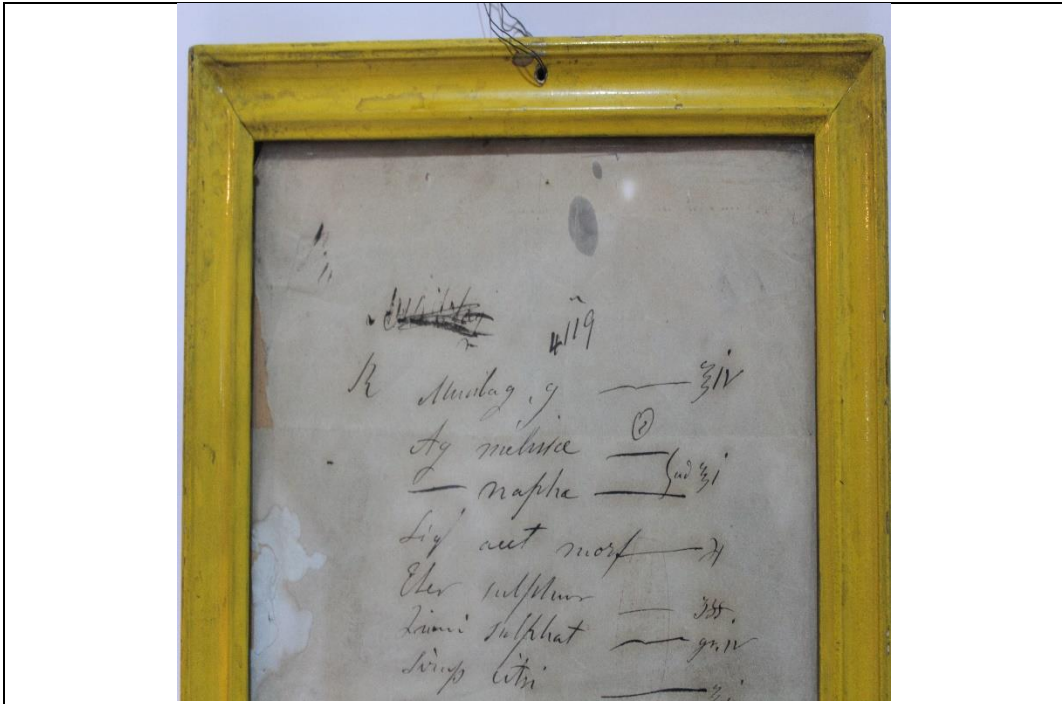 4119
℞ Mucilag. g — ℥iv
Aq melissæ —
— naphæ — } ad ℥i
Liq acet morf —
Eter sulphur — ʒss.
sulphat — gr. iv
Sirup citri —